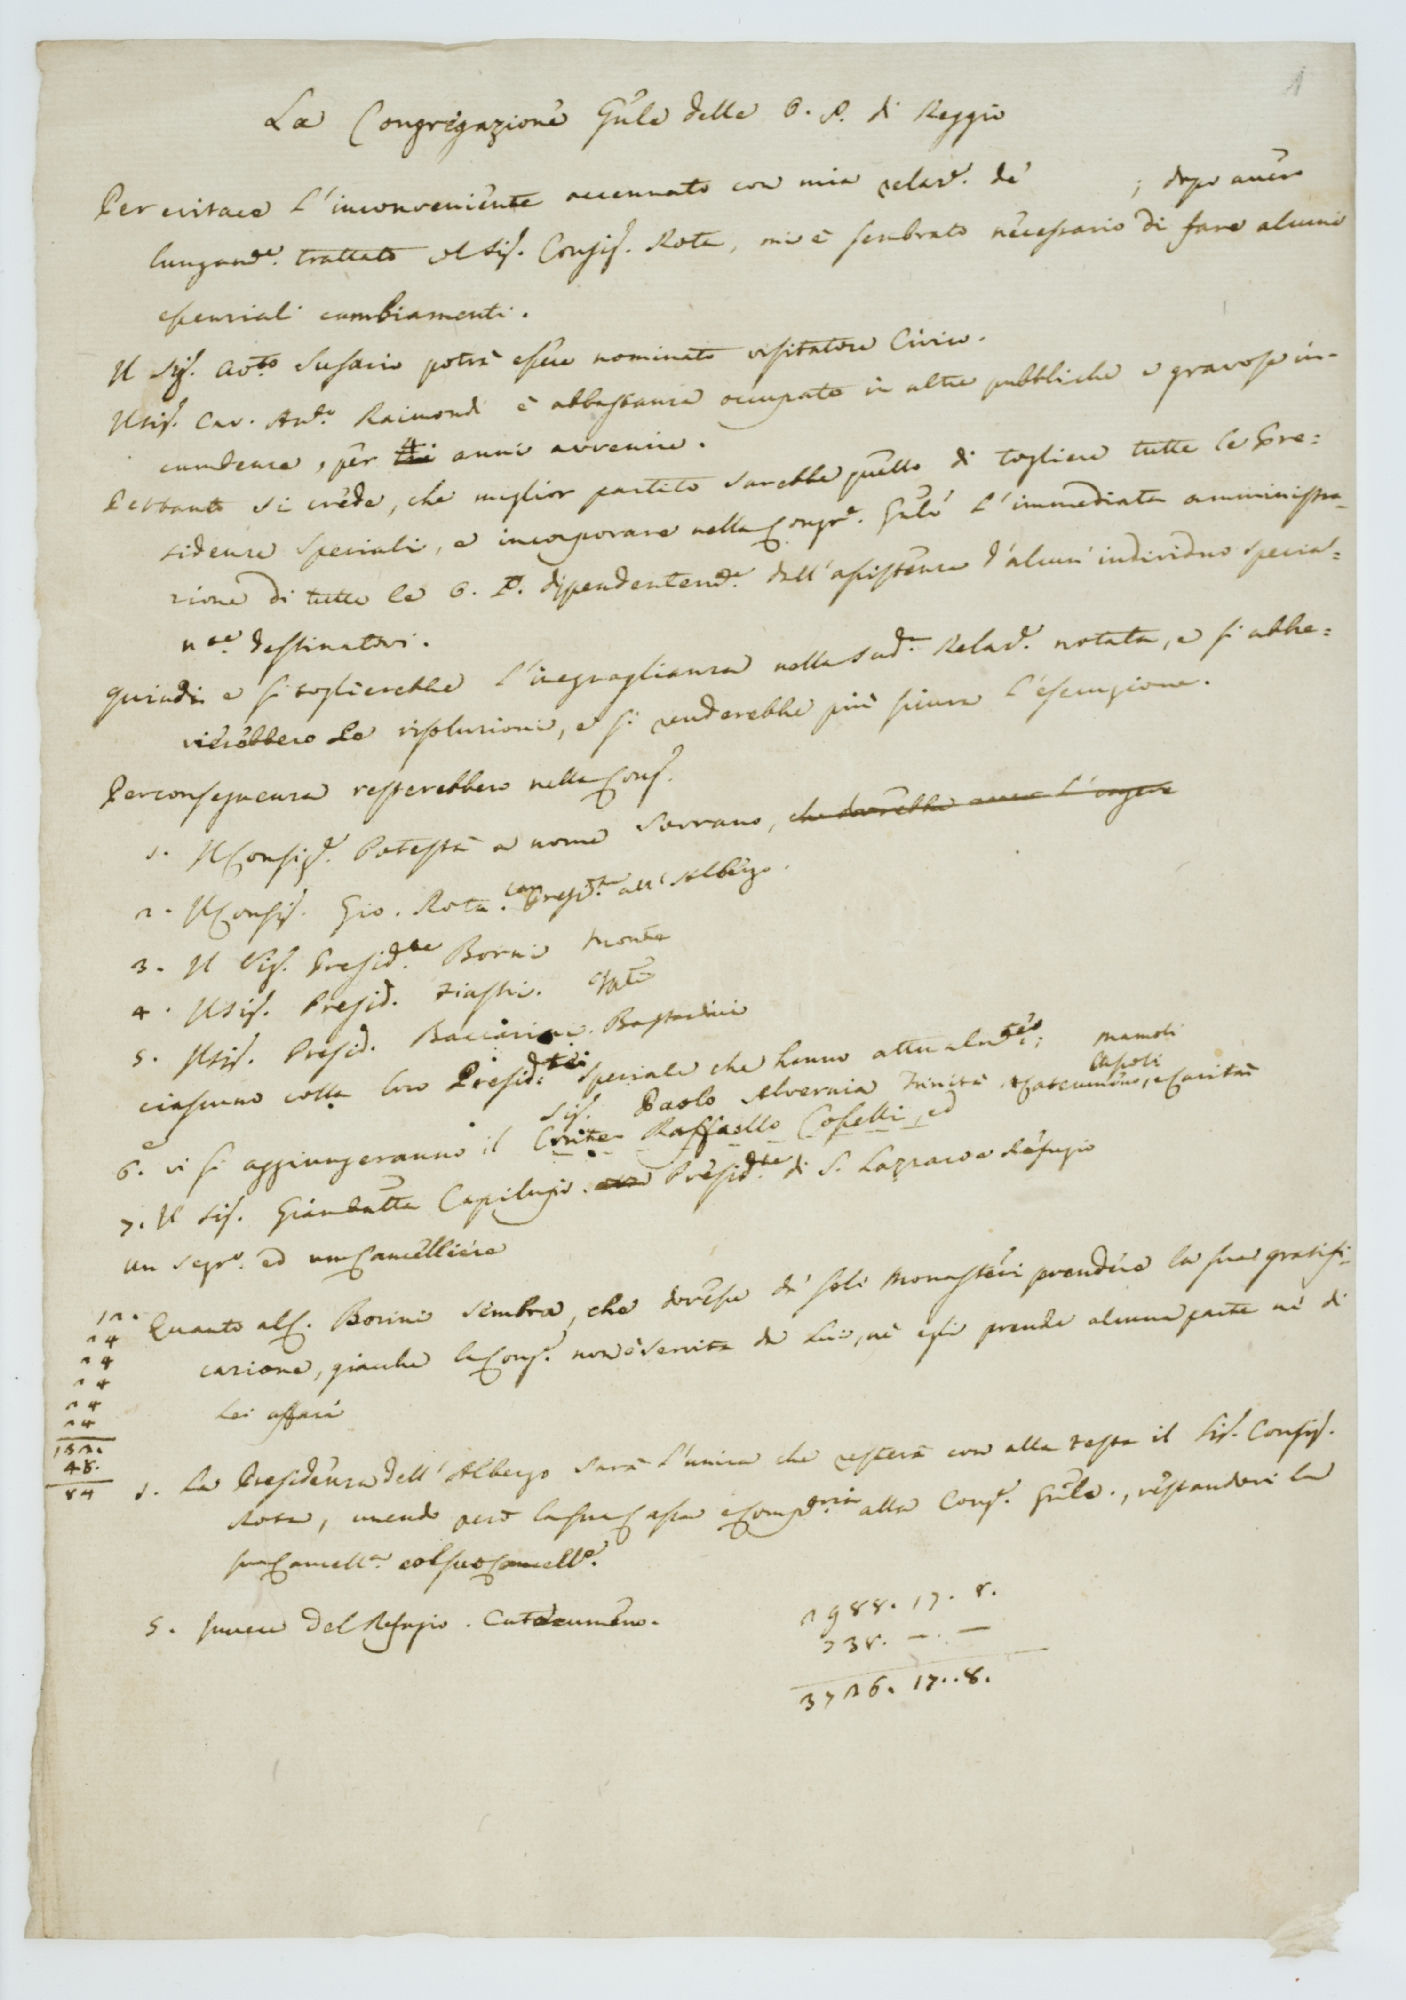 1
La Congregazione Gnle delle O. P. di Reggio
Per evitare l'inconveniente accennato con mia relaz.e de' ; dopo avere
lungam.e trattato col Sig. Consig. Rota, mi è sembrato necessario di fare alcuni
essenziali cambiamenti.
Il Sig. Avv.to potrà essere nominato visitatore Civico.
Il Sig. Cav. And.a Raimondi è abbastanza occupato in altre pubbliche e gravose in-
cumbenze, per 4 anni avvenire.
Pertanto si crede, che miglior partito sarebbe quello di togliere tutte le Pre=
sidenze speciali, e incorporare nella Congr.e Gnle l'immediata amministra-
zione di tutte le O. P. dipendentem.e dall'assistenza d'alcun individuo special=
m.e destinatovi.
Quindi e si toglierebbe l'ineguaglianza nella sud.a Relaz.e notata, e si abbre=
vierebbero le risoluzioni, e si renderebbe più sicura l'esecuzione.
Per conseguenza resterebbero nella Cong.
1. Il Consig.e Potestà a nome Sovrano, che dovrebbe avere l'
2. Il Consig. Gio. Rota. Presid.te all'Albergo.
3. Il Sig. Presid.te Borni Monte
4. Il Sig. Presid. Fiastri.
5. Il Sig. Presid. Baccarini. Bastardini
ciascuno colla loro Presid. speciale che hanno attualm.e;
Sig. Paolo Alvernia Trinità Catecumeno, e Carità
6. vi si aggiungeranno il Conte Raffaello Coselli, ed
7. Il Sig. Giambatta Capilupi. Presid.te di S. Lazzaro e Refugio
un Segr.o ed un Cancelliere
Quanto al S. Borini sembra, che dovesse da' soli Monasteri prendere la sua gratifi-
cazione, giacchè la Cong.e non è servita da lui, nè egli prende alcuna parte ne' di
Lei affari
12.
24
24
24
24
24
132.
48.
84
1. La Presidenza dell'Albergo sarà l'unica che resterà con alla testa il Sig. Consig.
Rota, unendo però la sua Cassa e Comp.ria alla Cong.e Gnle., restandovi la
sua Cancell.a col suo Cancell.e.
5. del Refugio. Catecumeno.
2988. 17. 8.
738. — . —
3726. 17. 8.